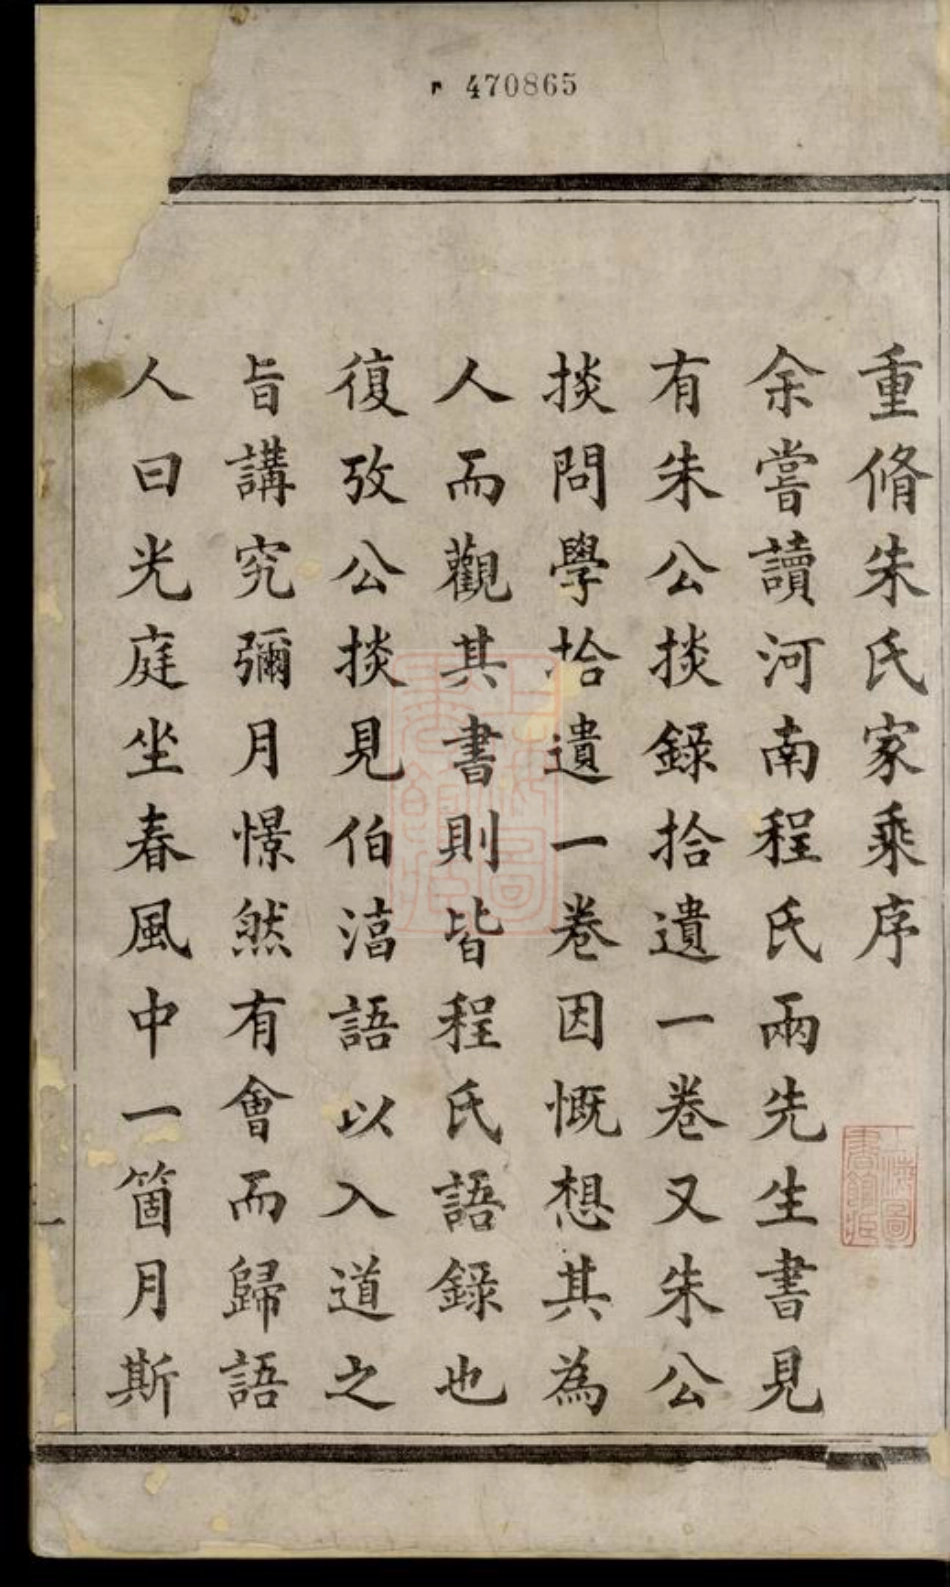 470865
重脩朱氏家乘序
余嘗讀河南程氏兩先生書見
有朱公掞錄拾遺一卷又朱公
掞問學拾遺一卷因慨想其為
人而觀其書則皆程氏語錄也
復攷公掞見伯湻語以入道之
旨講究彌月憬然有會而歸語
人曰光庭坐春風中一箇月斯
一
上海圖書館藏